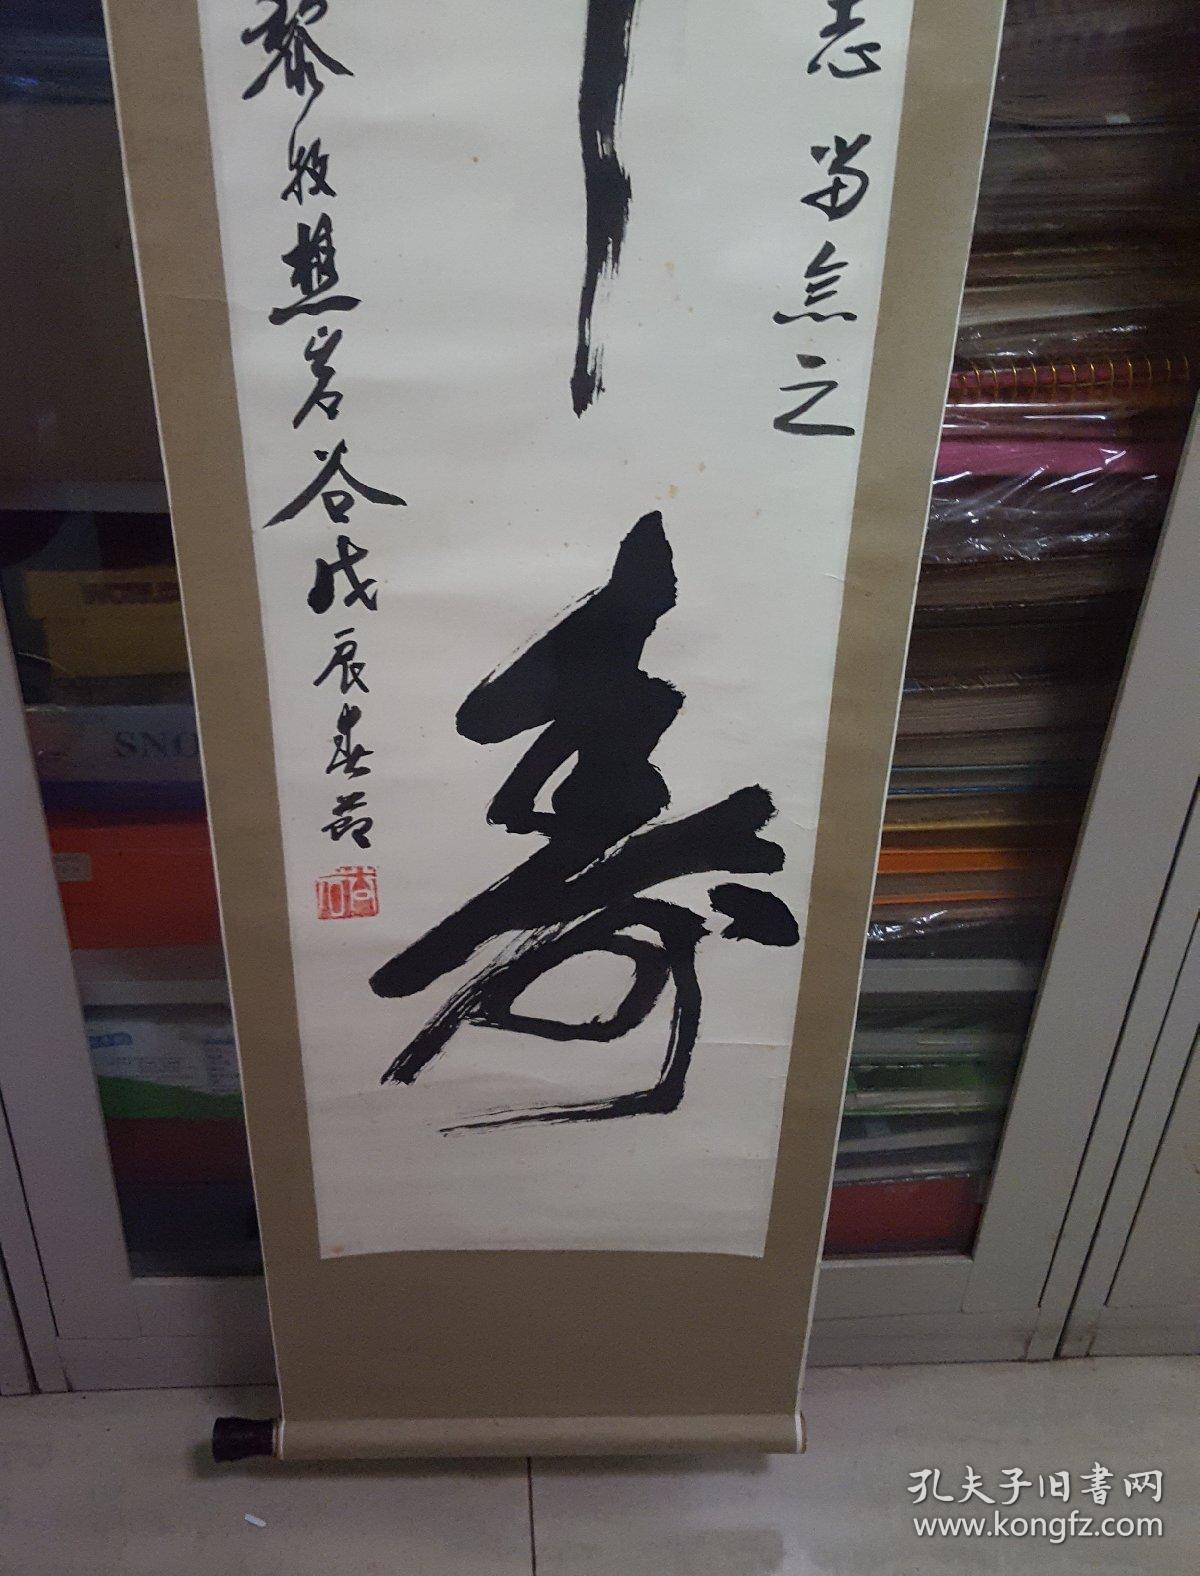 志留念之
寿
黎牧樵岩谷戊辰春节
SNO
孔夫子旧書网
www.kongfz.com